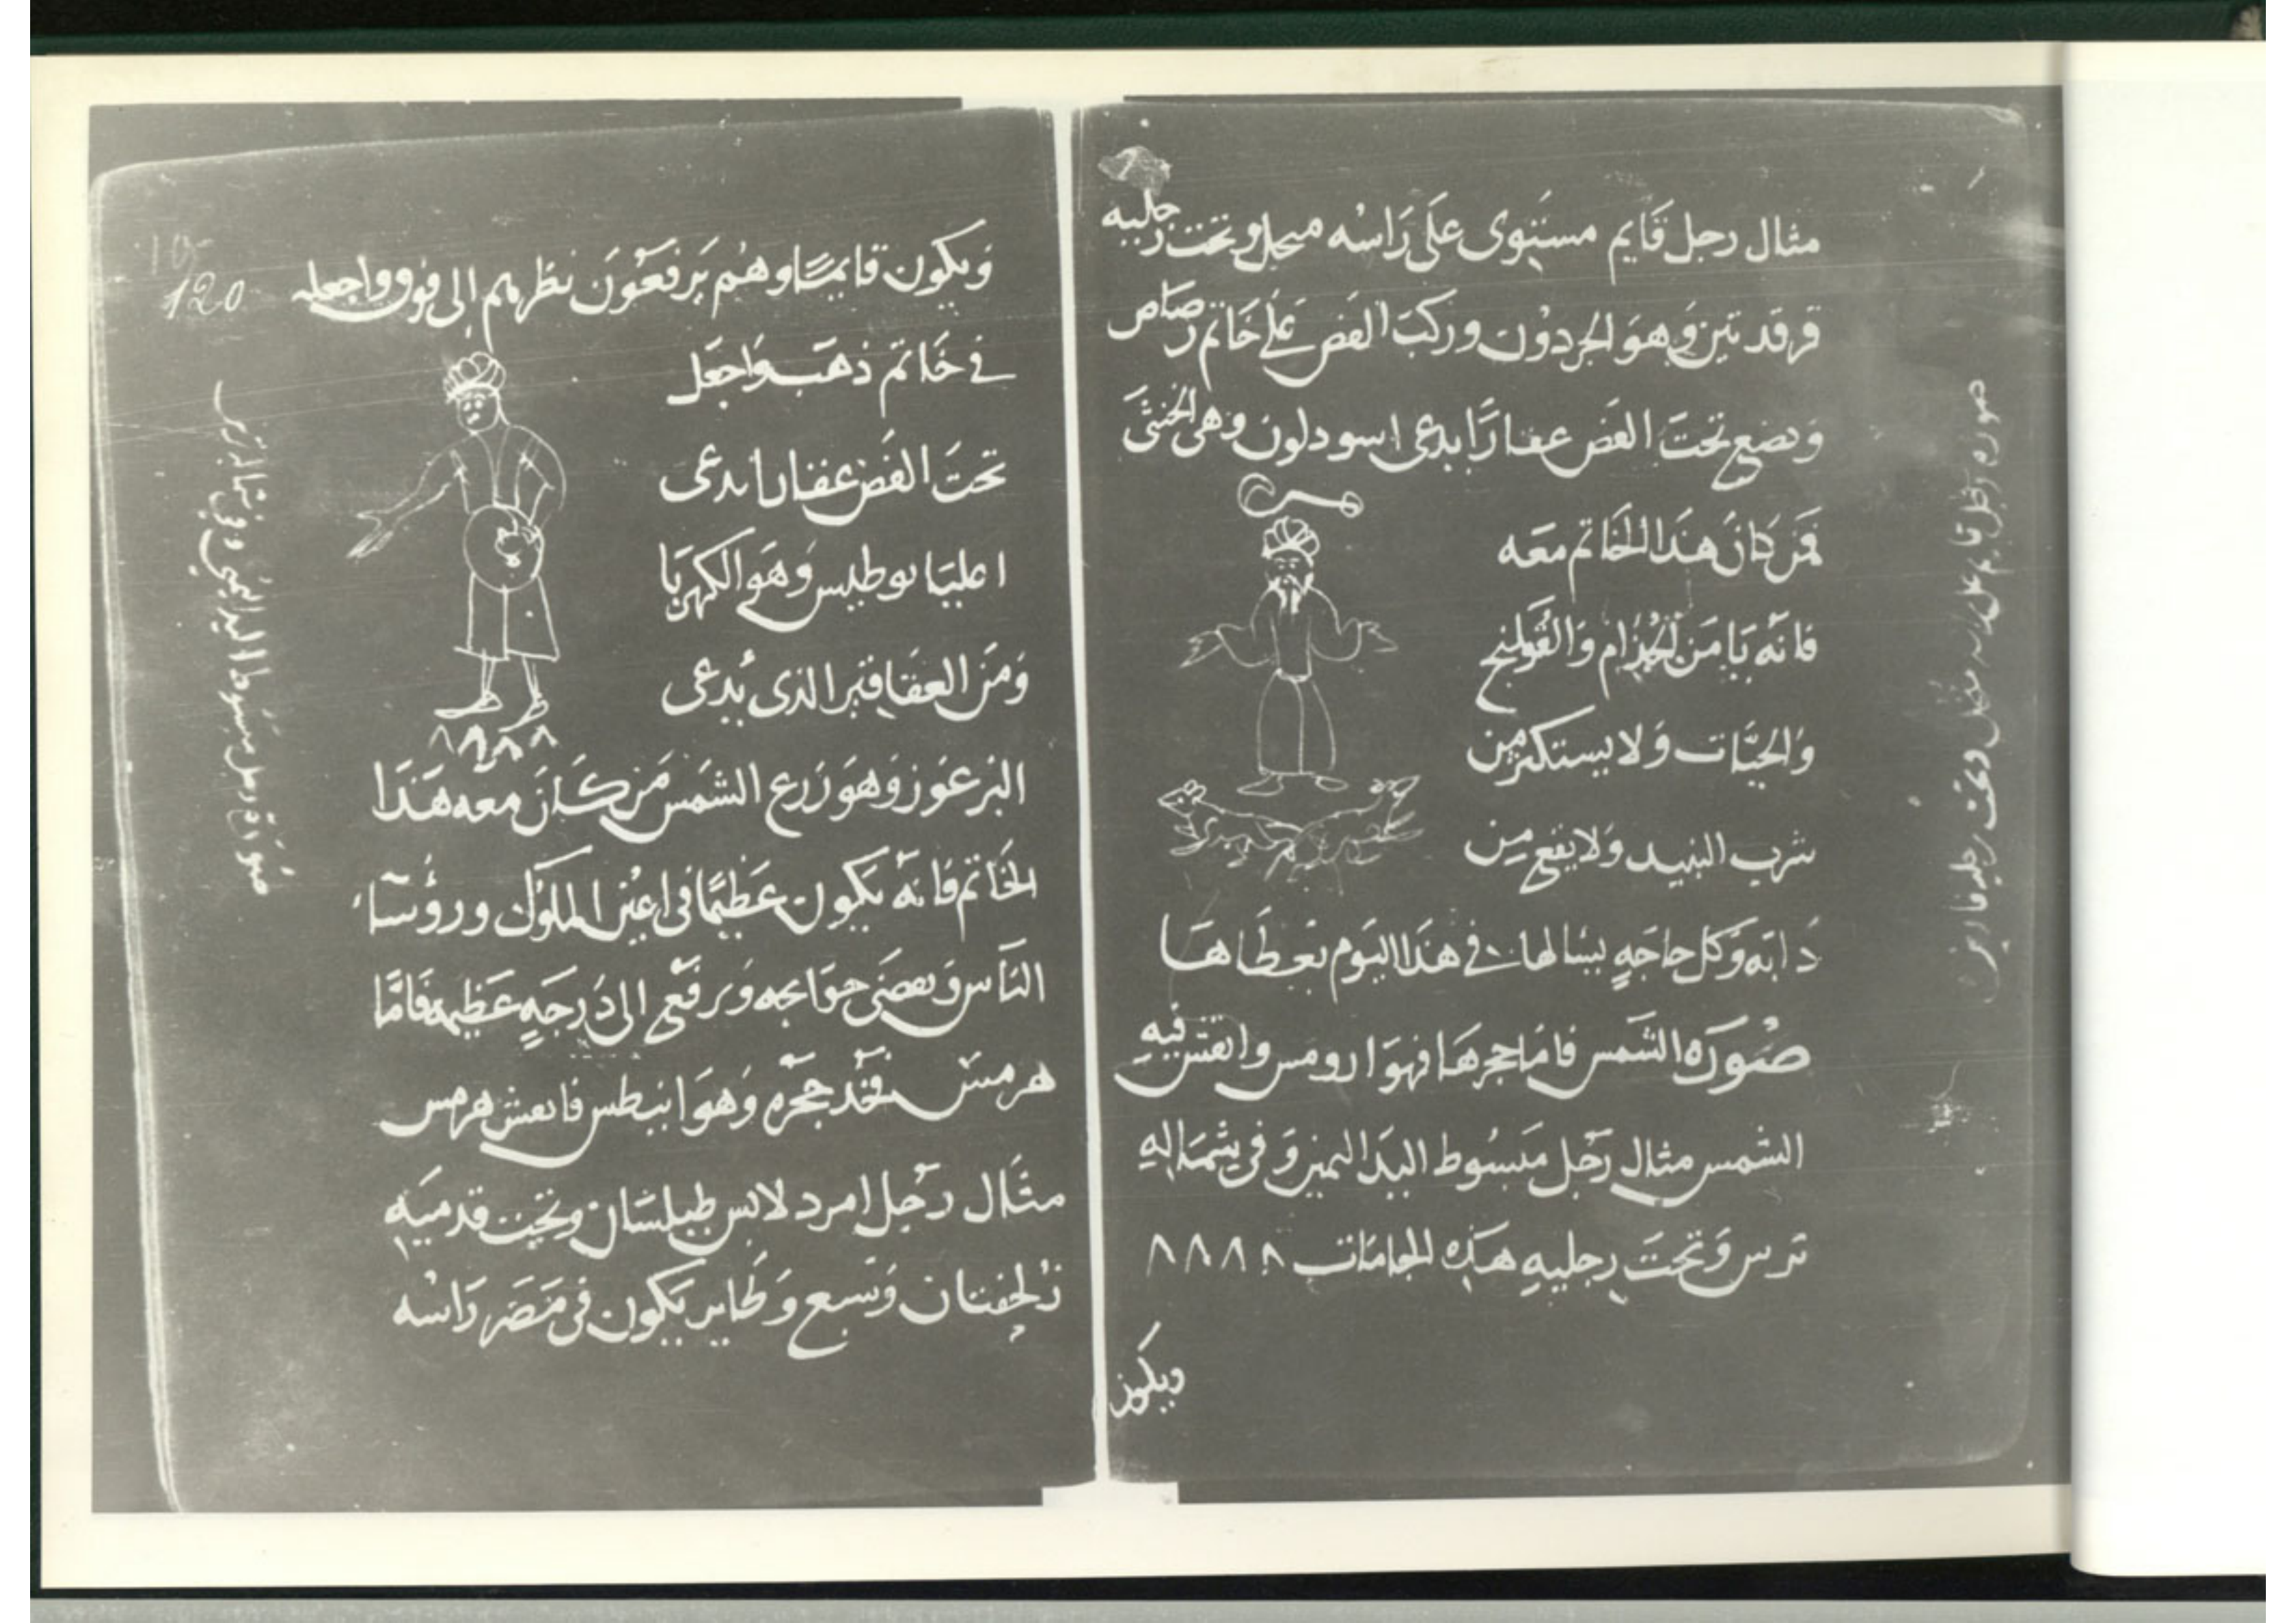 مثال رجل قايم مستوى على راسه منجل وتحت رجليه
قرقدتين وهو الجردون وركب الفص على خاتم رصاص
وتضع تحت الفص عقارا يدعى اسودلون وهى الخنثى
فمن كان هذا الخاتم معه
فانه يامن الجذام والقولنج
والحيات ولا يستكثر من
شرب النبيد ولا يقع من
دابته وكل حاجه يسالها فى هذا اليوم تعطاها
صورة الشمس فاما حجرها فهو ارومس وانقش فيه
الشمس مثال رجل مبسوط اليد اليمين وفى شماله
ترس وتحت رجليه هذه الجامات ٨ ٨ ٨ ٨
ويكون
صورة رجل قايم على راسه منجل وتحت رجليه
120
ويكون قايما وهم يرفعون نظرهم الى فوق واجعله
فى خاتم ذهب واجعل
تحت الفص عقارا يدعى
وهو الكهربا
ومن العقاقير الذى يدعى
٨ ٨ ٨ ٨
وهو زرع الشمس من كان معه هذا
الخاتم فانه يكون عظيما فى اعين الملوك ورؤساء
الناس وتقضى حوايجه ويرفع الى درجه عظيمه فاما
هرمس فخد حجره وهو انبطس فانقش هرمس
مثال رجل امرد لابس طيلسان وتحت قدميه
زلحفتان وسبع وطاير يكون فى راسه
صورة رجل مبسوط اليد اليمين وفى شماله ترس